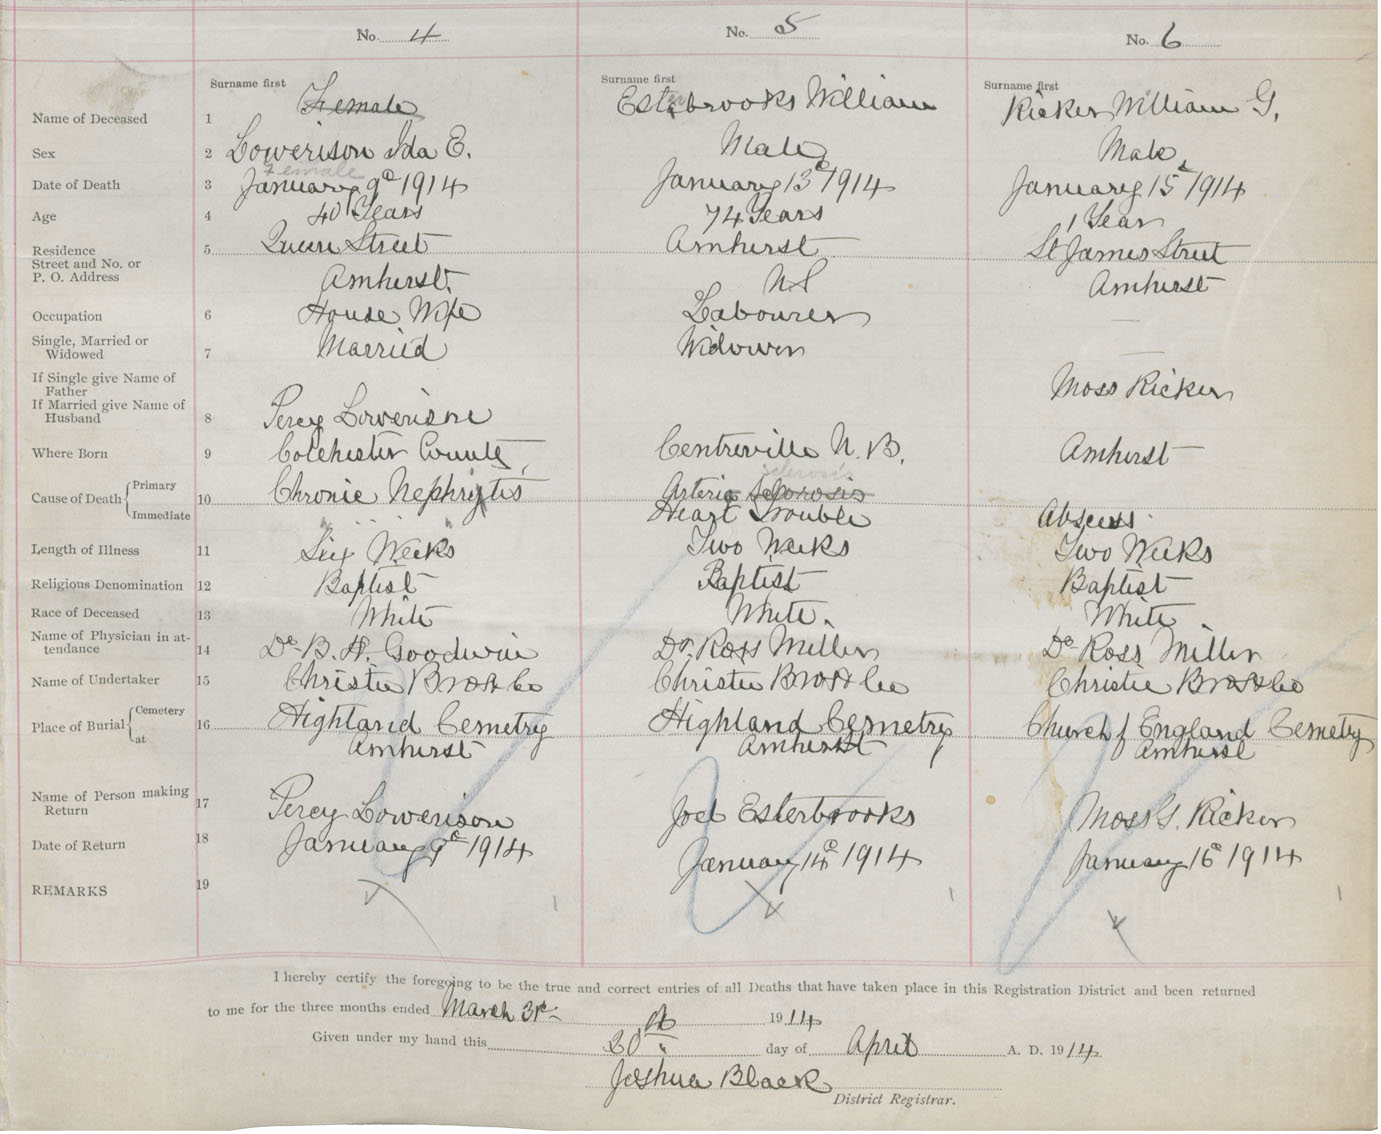 No. 4 No. 5 No. 6
Surname first Surname first Surname first
Name of Deceased 1 Female Estabrooks William Ricker William G.
Sex 2 Lowerison Ida E. Male Male
Female
Date of Death 3 January 9th 1914 January 13th 1914 January 15th 1914
Age 4 40 Years 74 Years 1 Year
Residence 5 Queen Street Amherst St James Street
Street and No. or
P. O. Address Amherst. N S Amherst
Occupation 6 House Wife Labourer —
Single, Married or
Widowed 7 Married Widower —
If Single give Name of
Father Moss Ricker
If Married give Name of
Husband 8 Percy Lowerison
Where Born 9 Colchester County, Centreville N. B. Amherst
sclerosis
Cause of Death Primary 10 Chronic Nephrytis Arteria
Immediate Heart Trouble Abscess.
Length of Illness 11 Six Weeks Two Weeks Two Weeks
Religious Denomination 12 Baptist Baptist Baptist
Race of Deceased 13 White White. White.
Name of Physician in at-
tendance 14 Dr. B. H. Goodwin Dr. Ross Miller Dr Ross Miller
Name of Undertaker 15 Christie Bros & Co Christie Bros & Co Christie Bros & Co
Place of Burial Cemetery 16 Highland Cemetry Highland Cemetry Church of England Cemetry
at Amherst Amherst Amherst
Name of Person making
Return 17 Percy Lowerison Joel Esterbrooks Moss G. Ricker
Date of Return 18 January 9th 1914 January 14th 1914 January 16th 1914
REMARKS 19
I hereby certify the foregoing to be the true and correct entries of all Deaths that have taken place in this Registration District and been returned
to me for the three months ended March 31st 1914
Given under my hand this 20th day of April A. D. 1914.
Joshua Black
District Registrar.